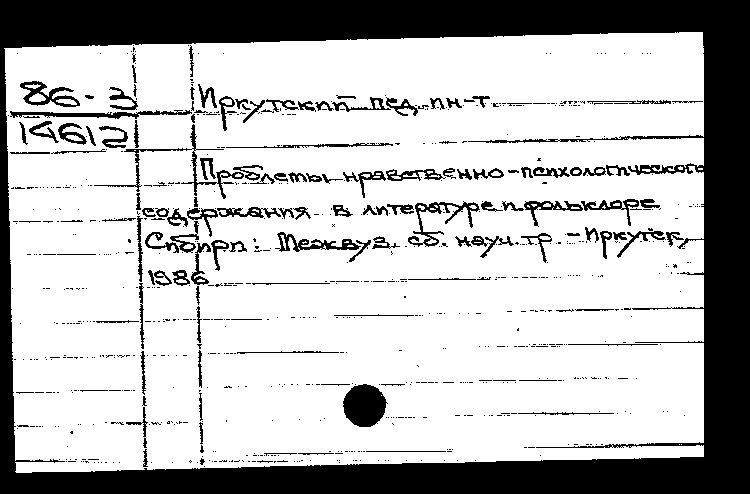 86-3
14612
Иркутский пед. ин-т.
Проблемы нравственно-психологического
содержания в литературе и фольклоре
Сибири: Межвуз. сб. науч. тр. - Иркутск,
1986